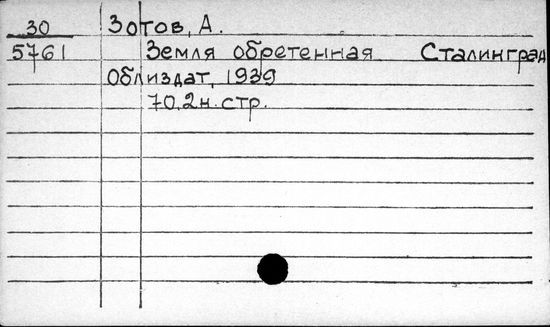 30 Зотов, А.
5761 Земля обретенная Сталинград
Облиздат, 1939
70,2н.стр.